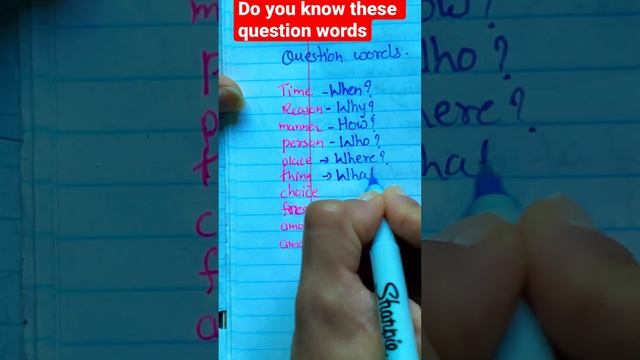 Do you know these
question words
Question words.
Time - When?
Reason - Why?
manner - How?
person - Who?
place → Where?
thing → What
choice
Sharpie